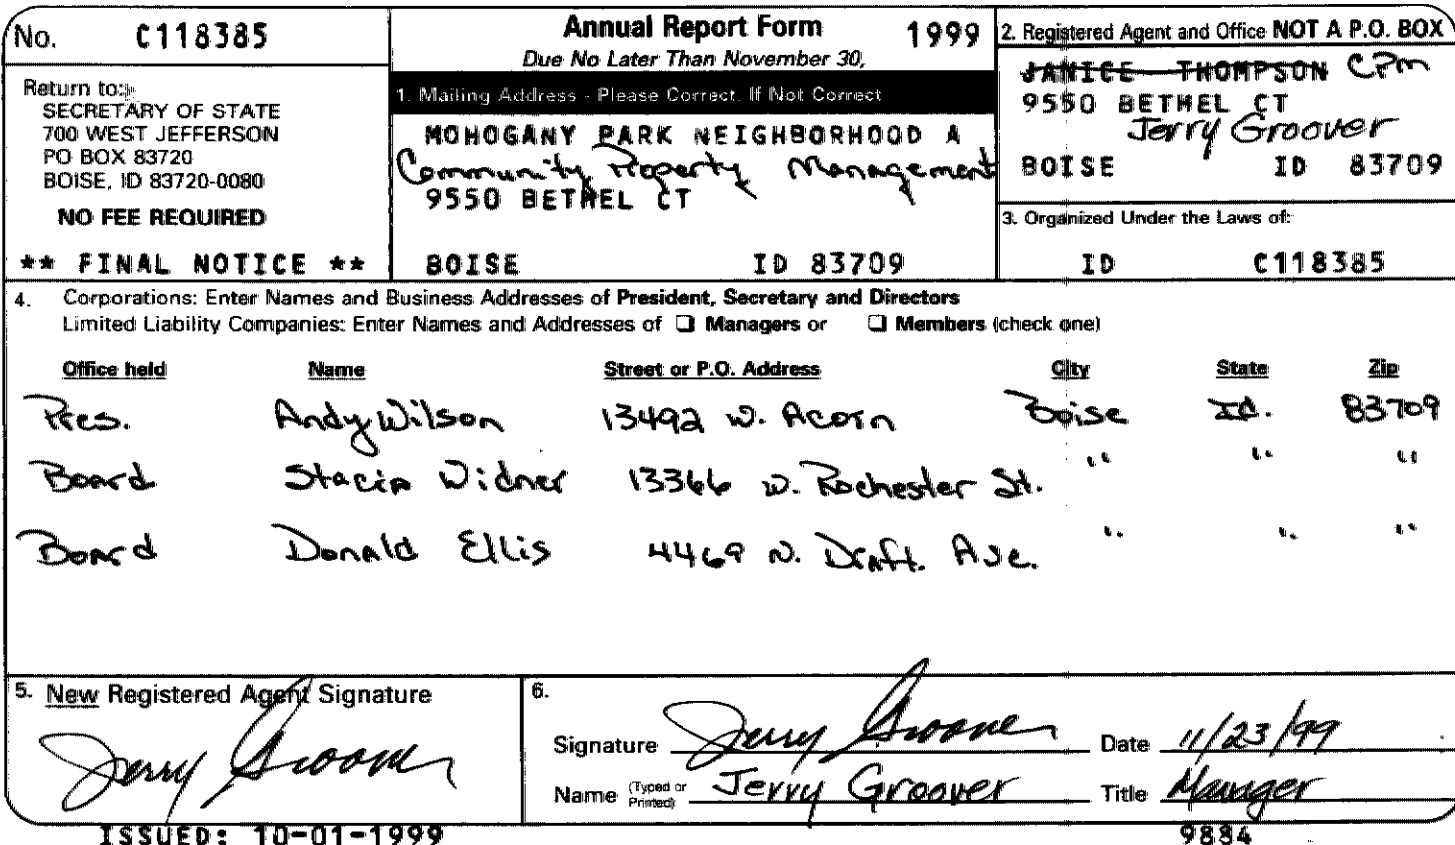 No. C118385
Return to:
SECRETARY OF STATE
700 WEST JEFFERSON
PO BOX 83720
BOISE, ID 83720-0080
NO FEE REQUIRED
** FINAL NOTICE **
Annual Report Form 1999
Due No Later Than November 30,
1. Mailing Address - Please Correct, If Not Correct
MOHOGANY PARK NEIGHBORHOOD A
Community Property Management
9550 BETHEL CT
BOISE ID 83709
2. Registered Agent and Office NOT A P.O. BOX
JANICE THOMPSON CPM
9550 BETHEL CT
Jerry Groover
BOISE ID 83709
3. Organized Under the Laws of:
ID C118385
4. Corporations: Enter Names and Business Addresses of President, Secretary and Directors
Limited Liability Companies: Enter Names and Addresses of ❑ Managers or ❑ Members (check one)
Office held Name Street or P.O. Address City State Zip
Pres. Andy Wilson 13492 W. Acorn Boise Id. 83709
Board Stacia Widner 13366 W. Rochester St. " " "
Board Donald Ellis 4469 N. Draft. Ave. " " "
5. New Registered Agent Signature
Jerry Groover
6.
Signature Jerry Groover Date 11/23/99
Name (Typed or Printed) Jerry Groover Title Manager
ISSUED: 10-01-1999 9884